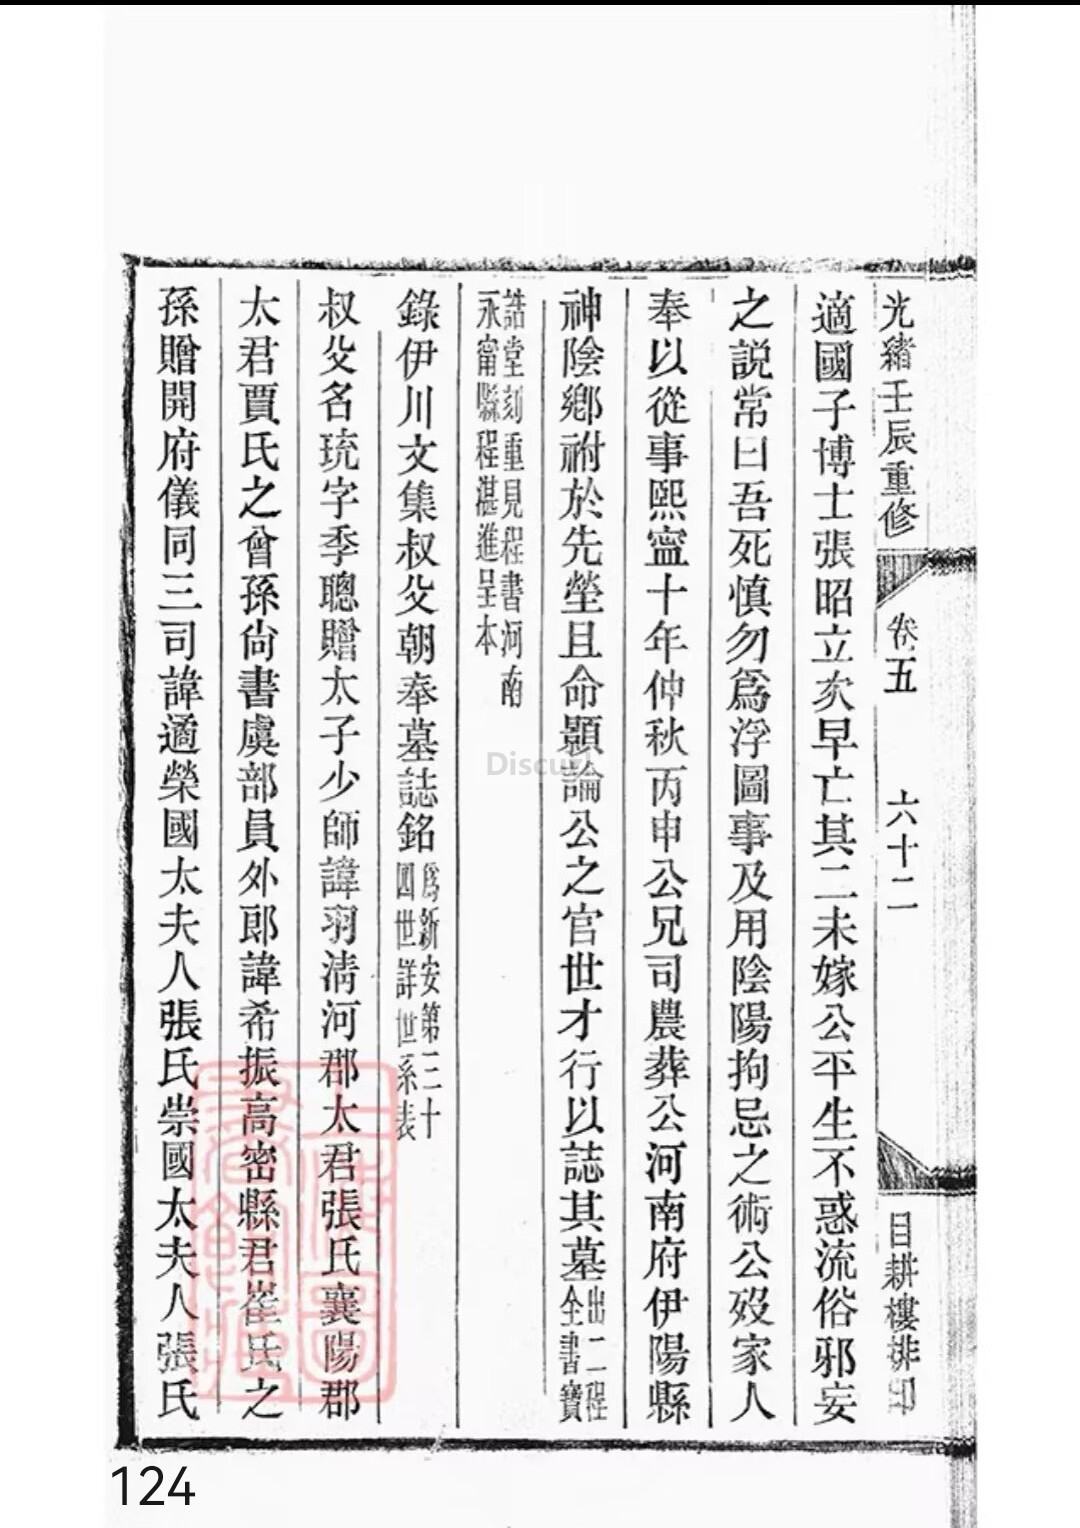 光緒壬辰重修
卷五
六十二
目耕樓排印
適國子博士張昭立亦早亡其二未嫁公平生不惑流俗邪妄
之説常曰吾死慎勿爲浮圖事及用陰陽拘忌之術公歿家人
奉以從事熙寍十年仲秋丙申公兄司農葬公河南府伊陽縣
神陰鄉祔於先塋且命顥論公之官世才行以誌其墓出二程全書寶
誥堂刻重見程書河南
永甯縣程湛進呈本
錄伊川文集叔父朝奉墓誌銘爲新安第三十四世詳世系表
叔父名珫字季聰贈太子少師諱羽清河郡太君張氏襄陽郡
太君賈氏之曾孫尙書虞部員外郎諱希振高密縣君崔氏之
孫贈開府儀同三司諱遹榮國太夫人張氏崇國太夫人張氏
Discuz!
124